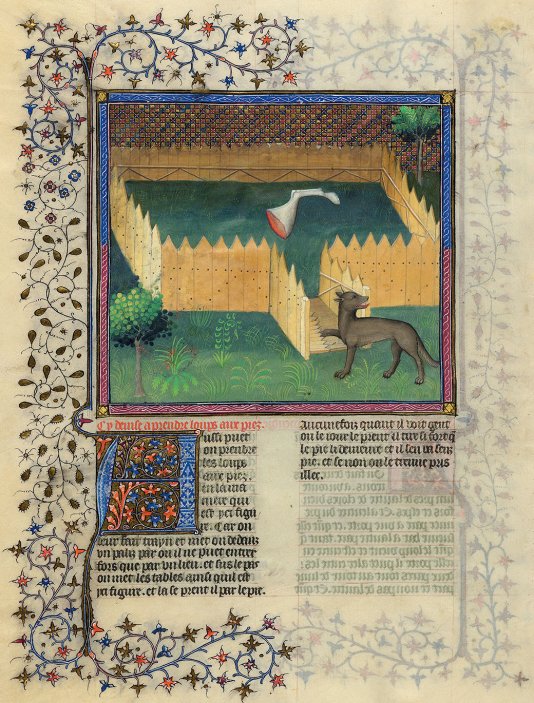 Cy devise a prendre loups aux piez.
Aussi puet
on prendre
les loups
aux piez
en la ma
niere qui
est yci figu
re. Car on
leur fait trayn et met on dedenz
un paliz par on il ne puet entrer
fors que par un lieu. et sus le pas
on met les tables ainsi quil est
yci figure. et la se prent il par le pie.
Aucunefois quant il voit gent
ou le iour le prent il tire si fort q̄
le pie li demeure et il sen va senz
pie. et se non on le treuve pris
illec.